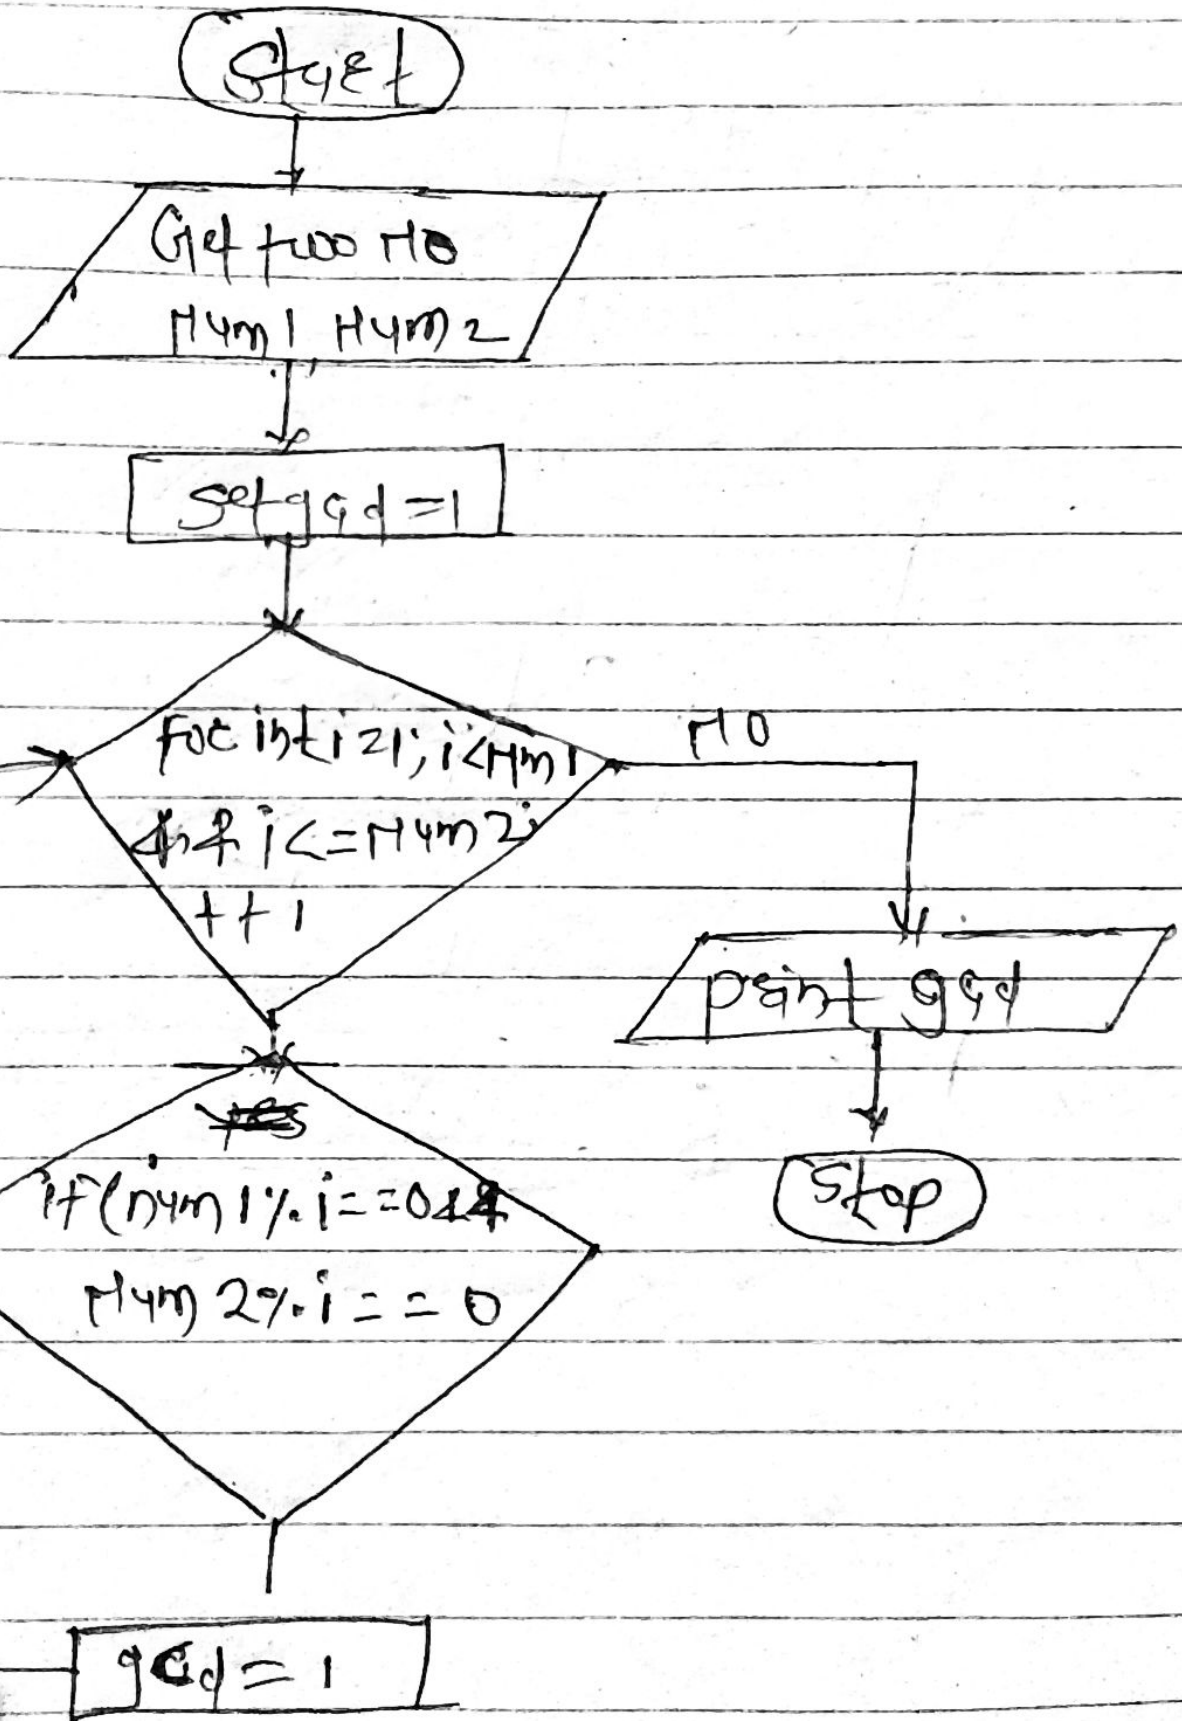 Start
Get two NO
Num1 Num2
Set gcd = 1
For int i=1; i<Nm1
&& i<=Num2;
++i
NO
print gcd
Stop
yes
if(num1%i==0&&
Num2%i==0
gcd = 1